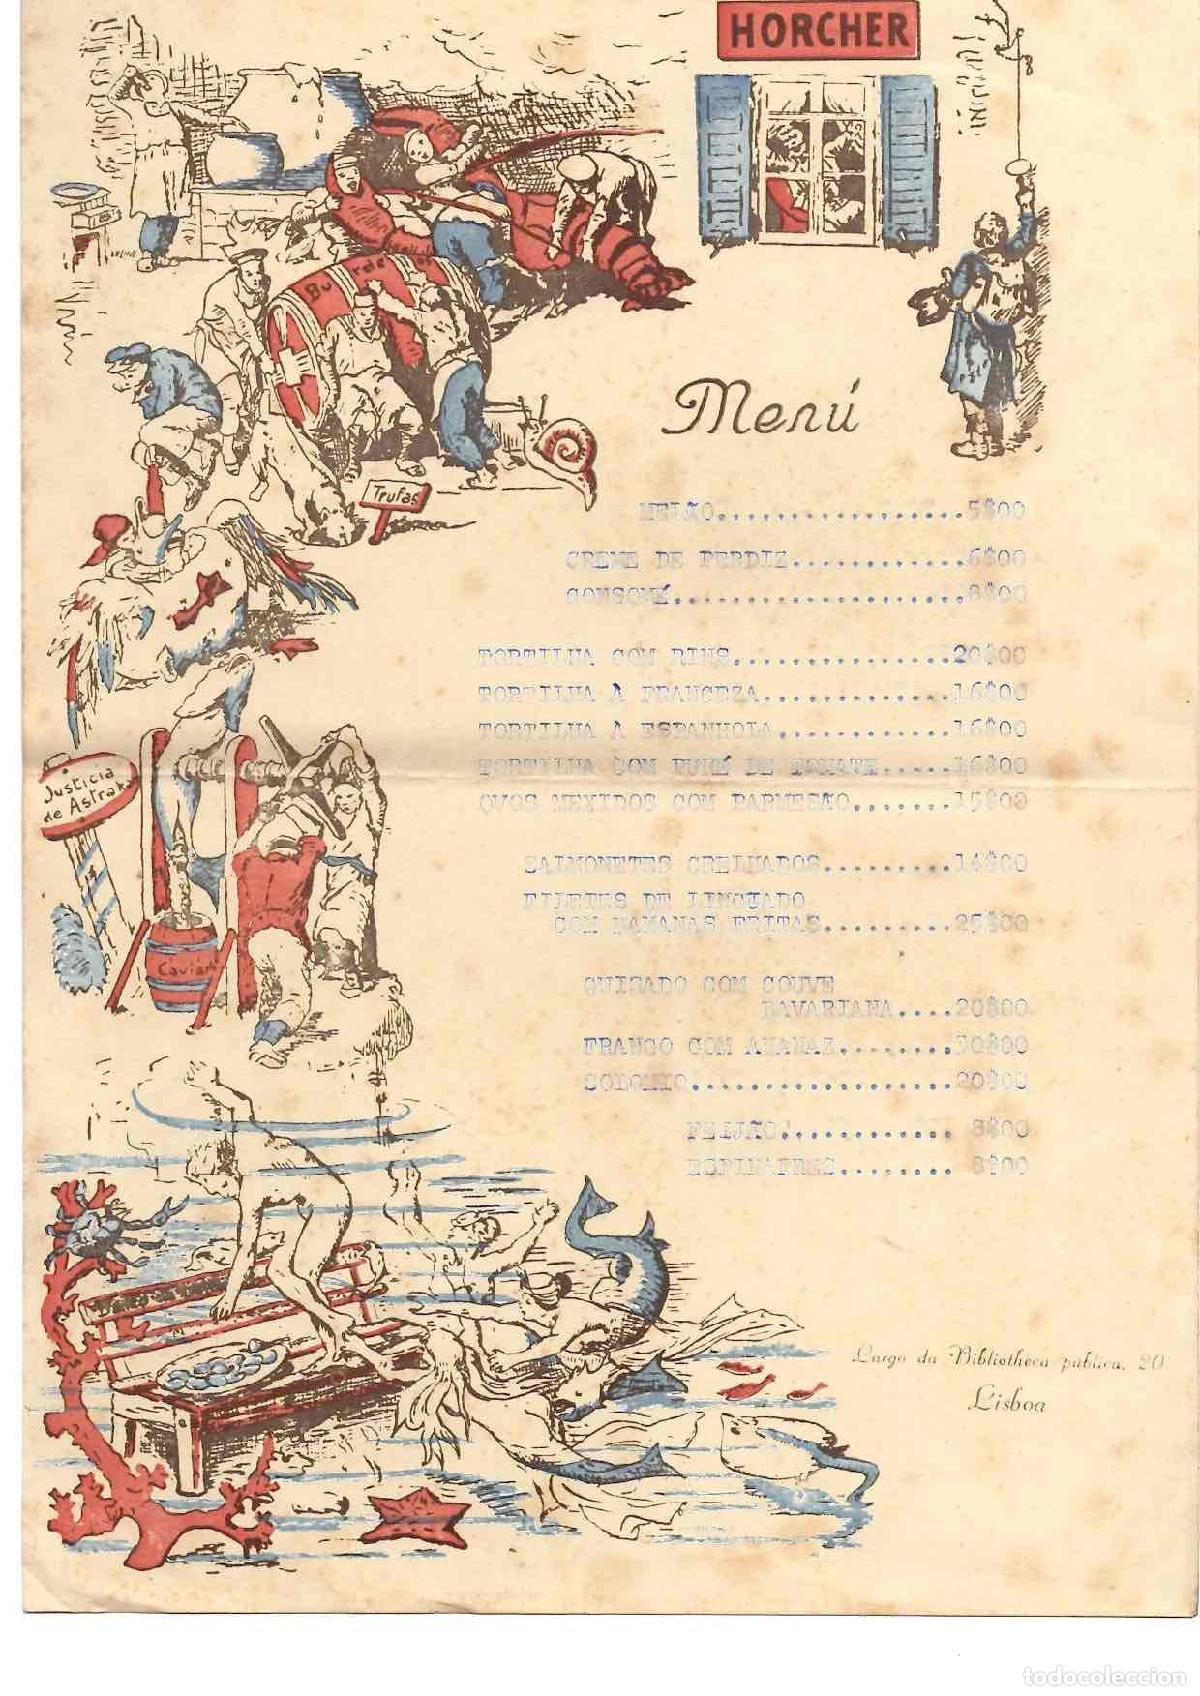 HORCHER
Burdeos
Menú
Trufas
MELÃO..................5$00
CREME DE PERDIZ............6$00
CONSOMÉ....................8$00
TORTILHA COM RINS...............20$00
TORTILHA À FRANCEZA.............16$00
TORTILHA À ESPANHOLA............16$00
TORTILHA COM PURÉ DE TOMATE.....16$00
OVOS MEXIDOS COM PARMESÃO.......15$00
Justicia
de Astraka
SALMONETES GRELHADOS.........14$00
FILETES DE LINGUADO
COM BANANAS FRITAS.........25$00
Caviar
GUISADO COM COUVE
BAVARIANA....20$00
FRANGO COM ANANAZ........30$00
SOLOMIO..................20$00
FEIJÃO............ 8$00
ESPINAFRES........ 8$00
Banco de
Largo da Bibliotheca publica, 20
Lisboa
todocoleccion